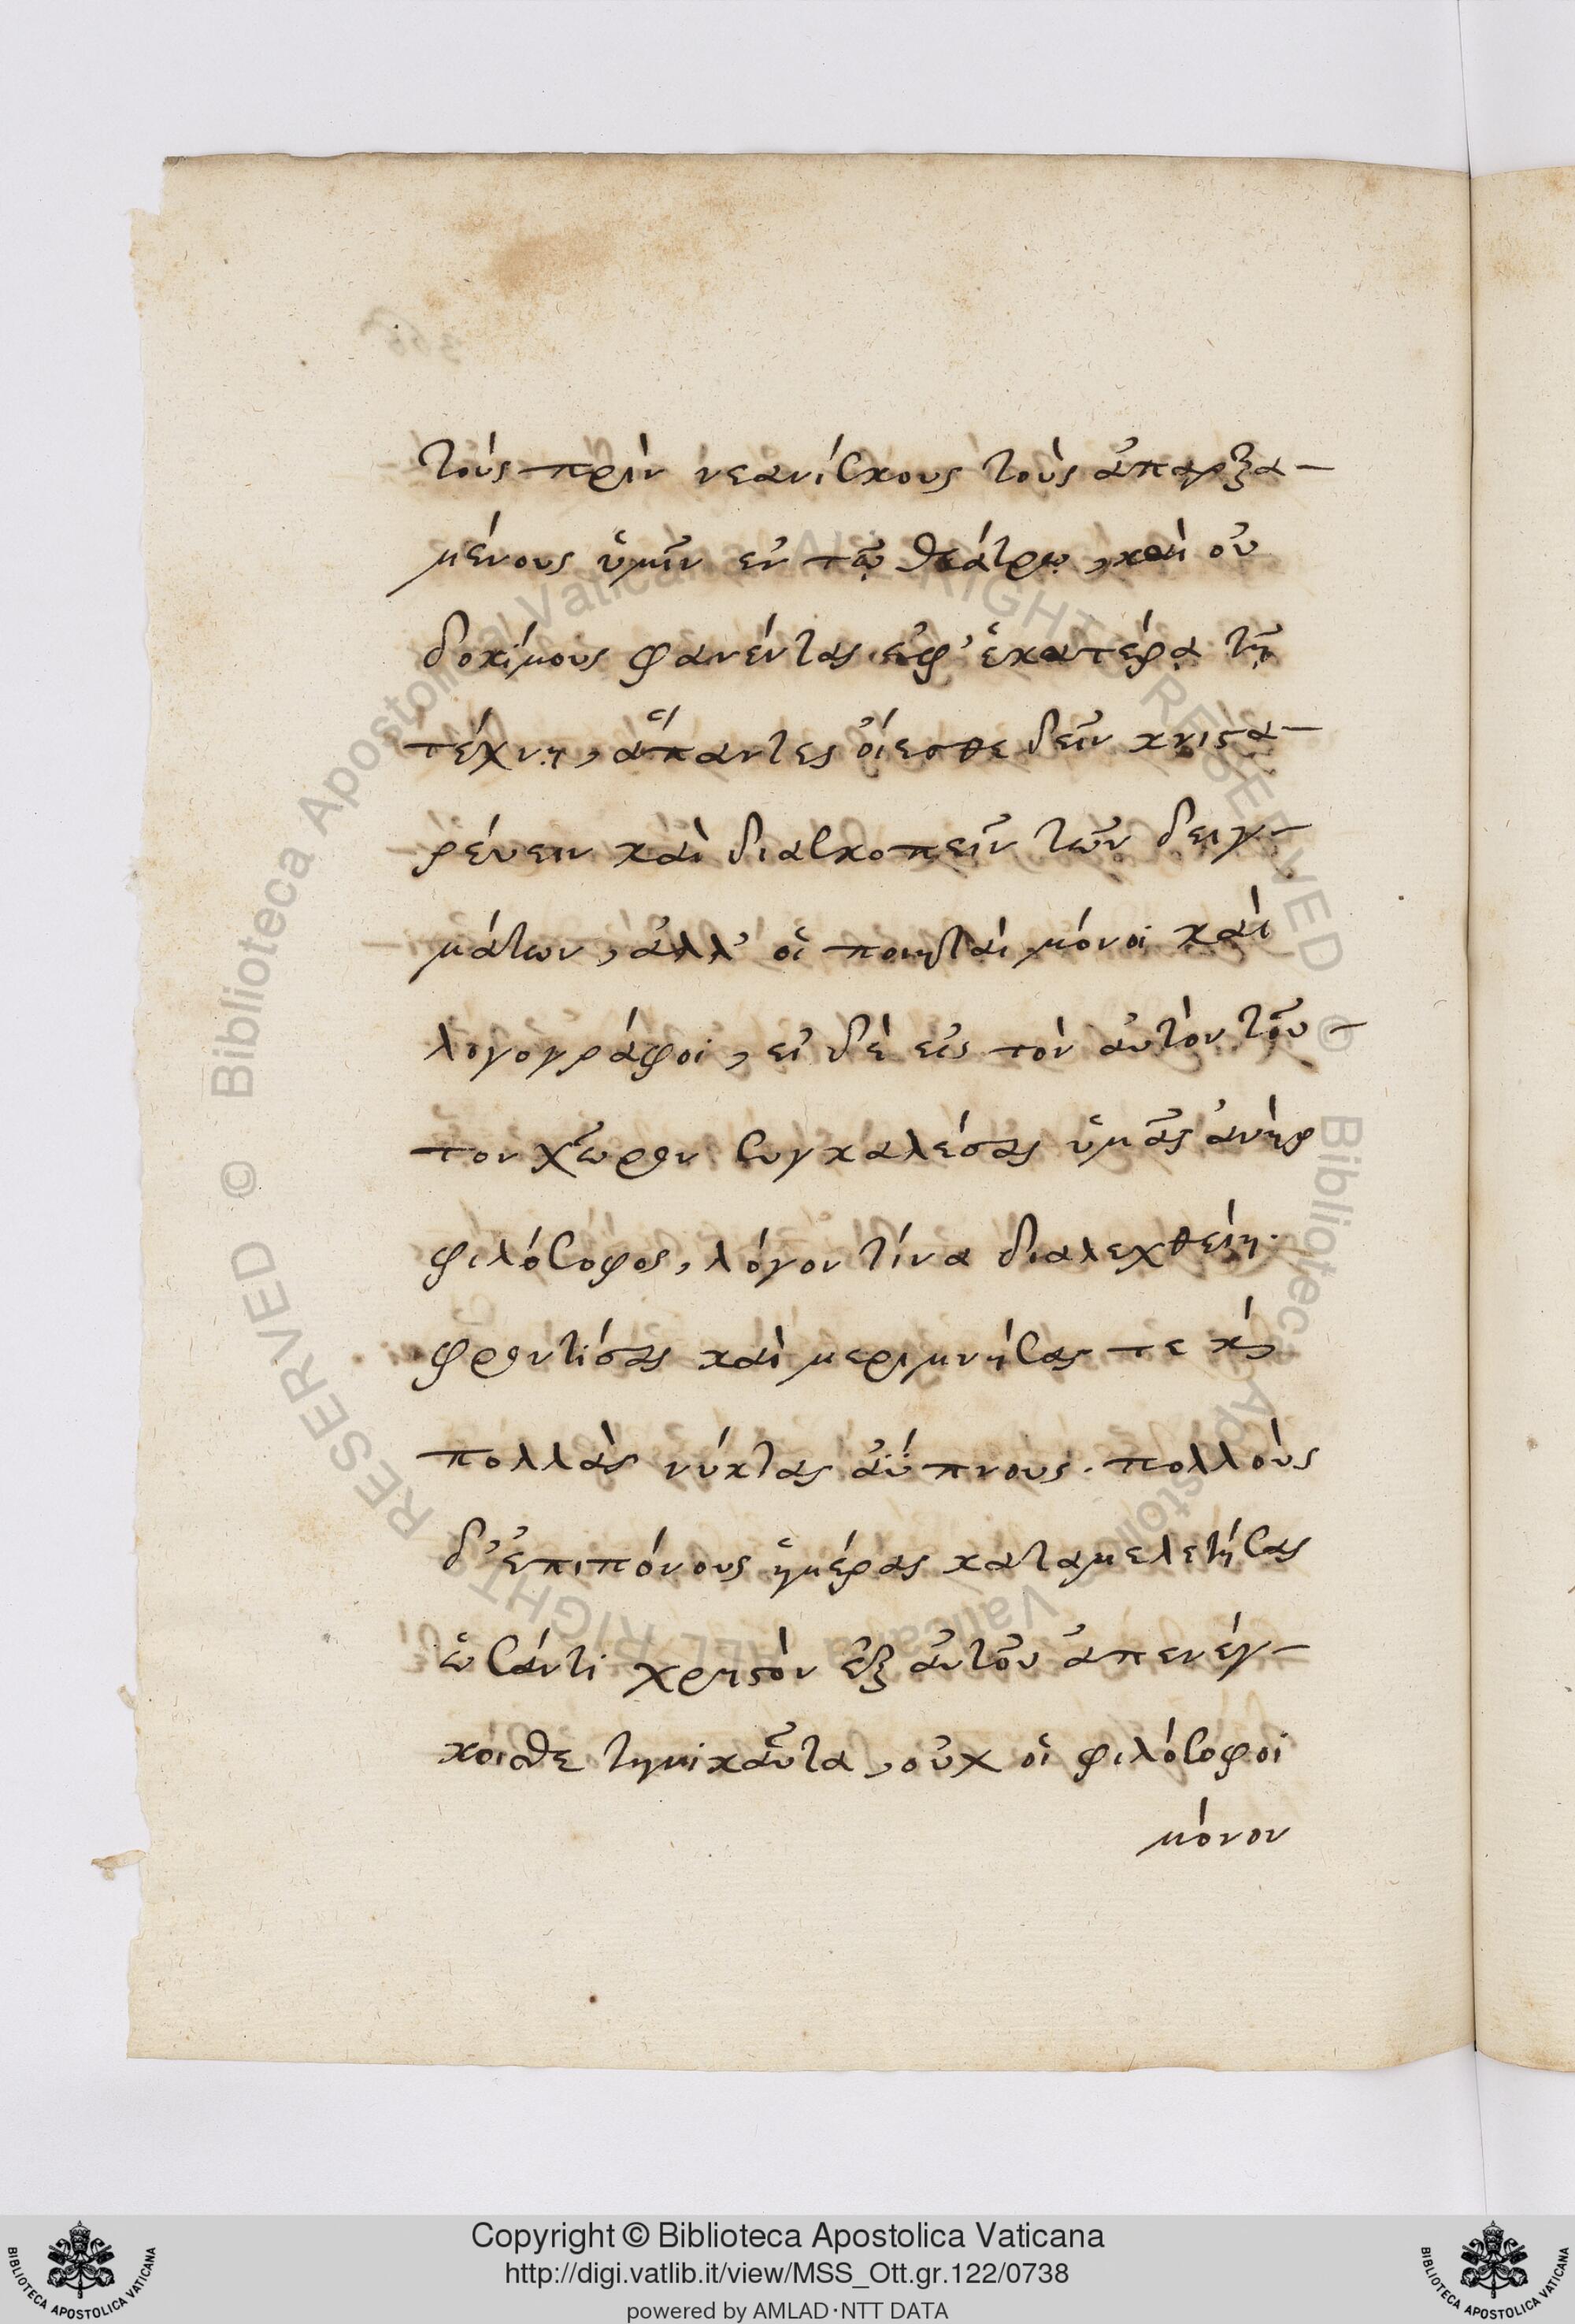 τοὺς πρὶν νεανίσκους τοὺς ἀπαρξα-
μένους ὑμῖν ἐν τῷ θεάτρῳ, καὶ οὐ
δοκίμους φανέντας ἐφ' ἑκατέρᾳ τῇ
τέχνῃ, ἅπαντες οἴεσθε δεῖν
καὶ διασκοπεῖν τῶν δειγ-
μάτων, ἀλλ' οἱ ποιηταὶ μόνοι καὶ
λογογράφοι, εἰ δὲ εἰς τὸν αὐτὸν τοῦ-
τον χῶρον συγκαλέσας ὑμᾶς ἀνὴρ
φιλόσοφος, λόγον τίνα διαλεχθείη.
φροντίσας καὶ μεριμνήσας τε κ̀
πολλὰς νύκτας ἀΰπνους. πολλοὺς
δ' ἐπιπόνους ἡμέρας καταμελετήσας
χρηστὸν ἐξ αὐτοῦ ἀπενέγ-
κοισθε τηνικαῦτα, οὐχ οἱ φιλόσοφοι
μόνον
Copyright © Biblioteca Apostolica Vaticana
http://digi.vatlib.it/view/MSS_Ott.gr.122/0738
powered by AMLAD·NTT DATA
BIBLIOTECA APOSTOLICA VATICANA
BIBLIOTECA APOSTOLICA VATICANA